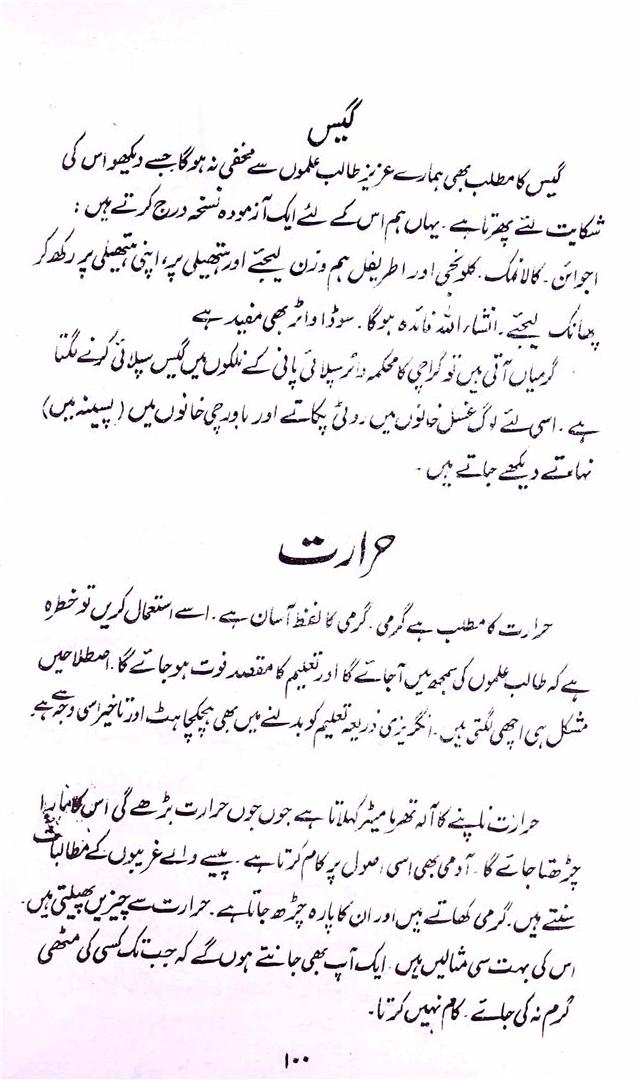 گیس
گیس کا مطلب بھی ہمارے عزیز طالب علموں سے مخفی نہ ہوگا جسے دیکھو اس کی
شکایت لئے پھرتا ہے ۔ یہاں ہم اس کے لئے ایک آزمودہ نسخہ درج کرتے ہیں :
اجوائن ۔ کالا نمک ۔ کلونجی اور اطریفل ہم وزن لیجئے اور ہتھیلی پر، اپنی ہتھیلی پر رکھ کر
پھانک لیجئے ۔ انشاء اللہ فائدہ ہوگا ۔ سوڈا واٹر بھی مفید ہے
گرمیاں آتی ہیں تو کراچی کا محکمہ واٹر سپلائی پانی کے نلکوں میں گیس سپلائی کرنے لگتا
ہے ۔ اسی لئے لوگ غسل خانوں میں روٹی پکاتے اور باورچی خانوں میں (پسینہ میں)
نہاتے دیکھے جاتے ہیں ۔
حرارت
حرارت کا مطلب ہے گرمی ۔ گرمی کا لفظ آسان ہے ۔ اسے استعمال کریں تو خطرہ
ہے کہ طالب علموں کی سمجھ میں آجائے گا اور تعلیم کا مقصد فوت ہو جائے گا ۔ اصطلاحیں
مشکل ہی اچھی لگتی ہیں ۔ انگریزی ذریعہ تعلیم کو بدلنے میں بھی ہچکچاہٹ اور تاخیر اسی وجہ سے ہے ۔
حرارت ناپنے کا آلہ تھرمامیٹر کہلاتا ہے جوں جوں حرارت بڑھے گی اس کا پارا
چڑھتا جائے گا ۔ آدمی بھی اسی اصول پر کام کرتا ہے ۔ پیسے والے غریبوں کے مطالبات
سنتے ہیں ۔ گرمی کھاتے ہیں اور ان کا پارہ چڑھ جاتا ہے ۔ حرارت سے چیزیں پھیلتی ہیں ۔
اس کی بہت سی مثالیں ہیں ۔ ایک آپ بھی جانتے ہوں گے کہ جب تک کسی کی مٹھی
گرم نہ کی جائے ۔ کام نہیں کرتا ۔
۱۰۰